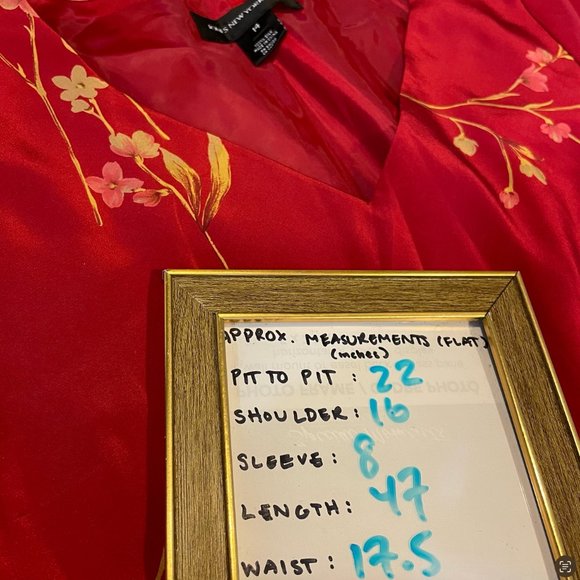 NEW YORK
14
APPROX. MEASUREMENTS (FLAT)
(inches)
PIT TO PIT : 22
SHOULDER : 16
SLEEVE : 8
LENGTH : 47
WAIST : 17.5